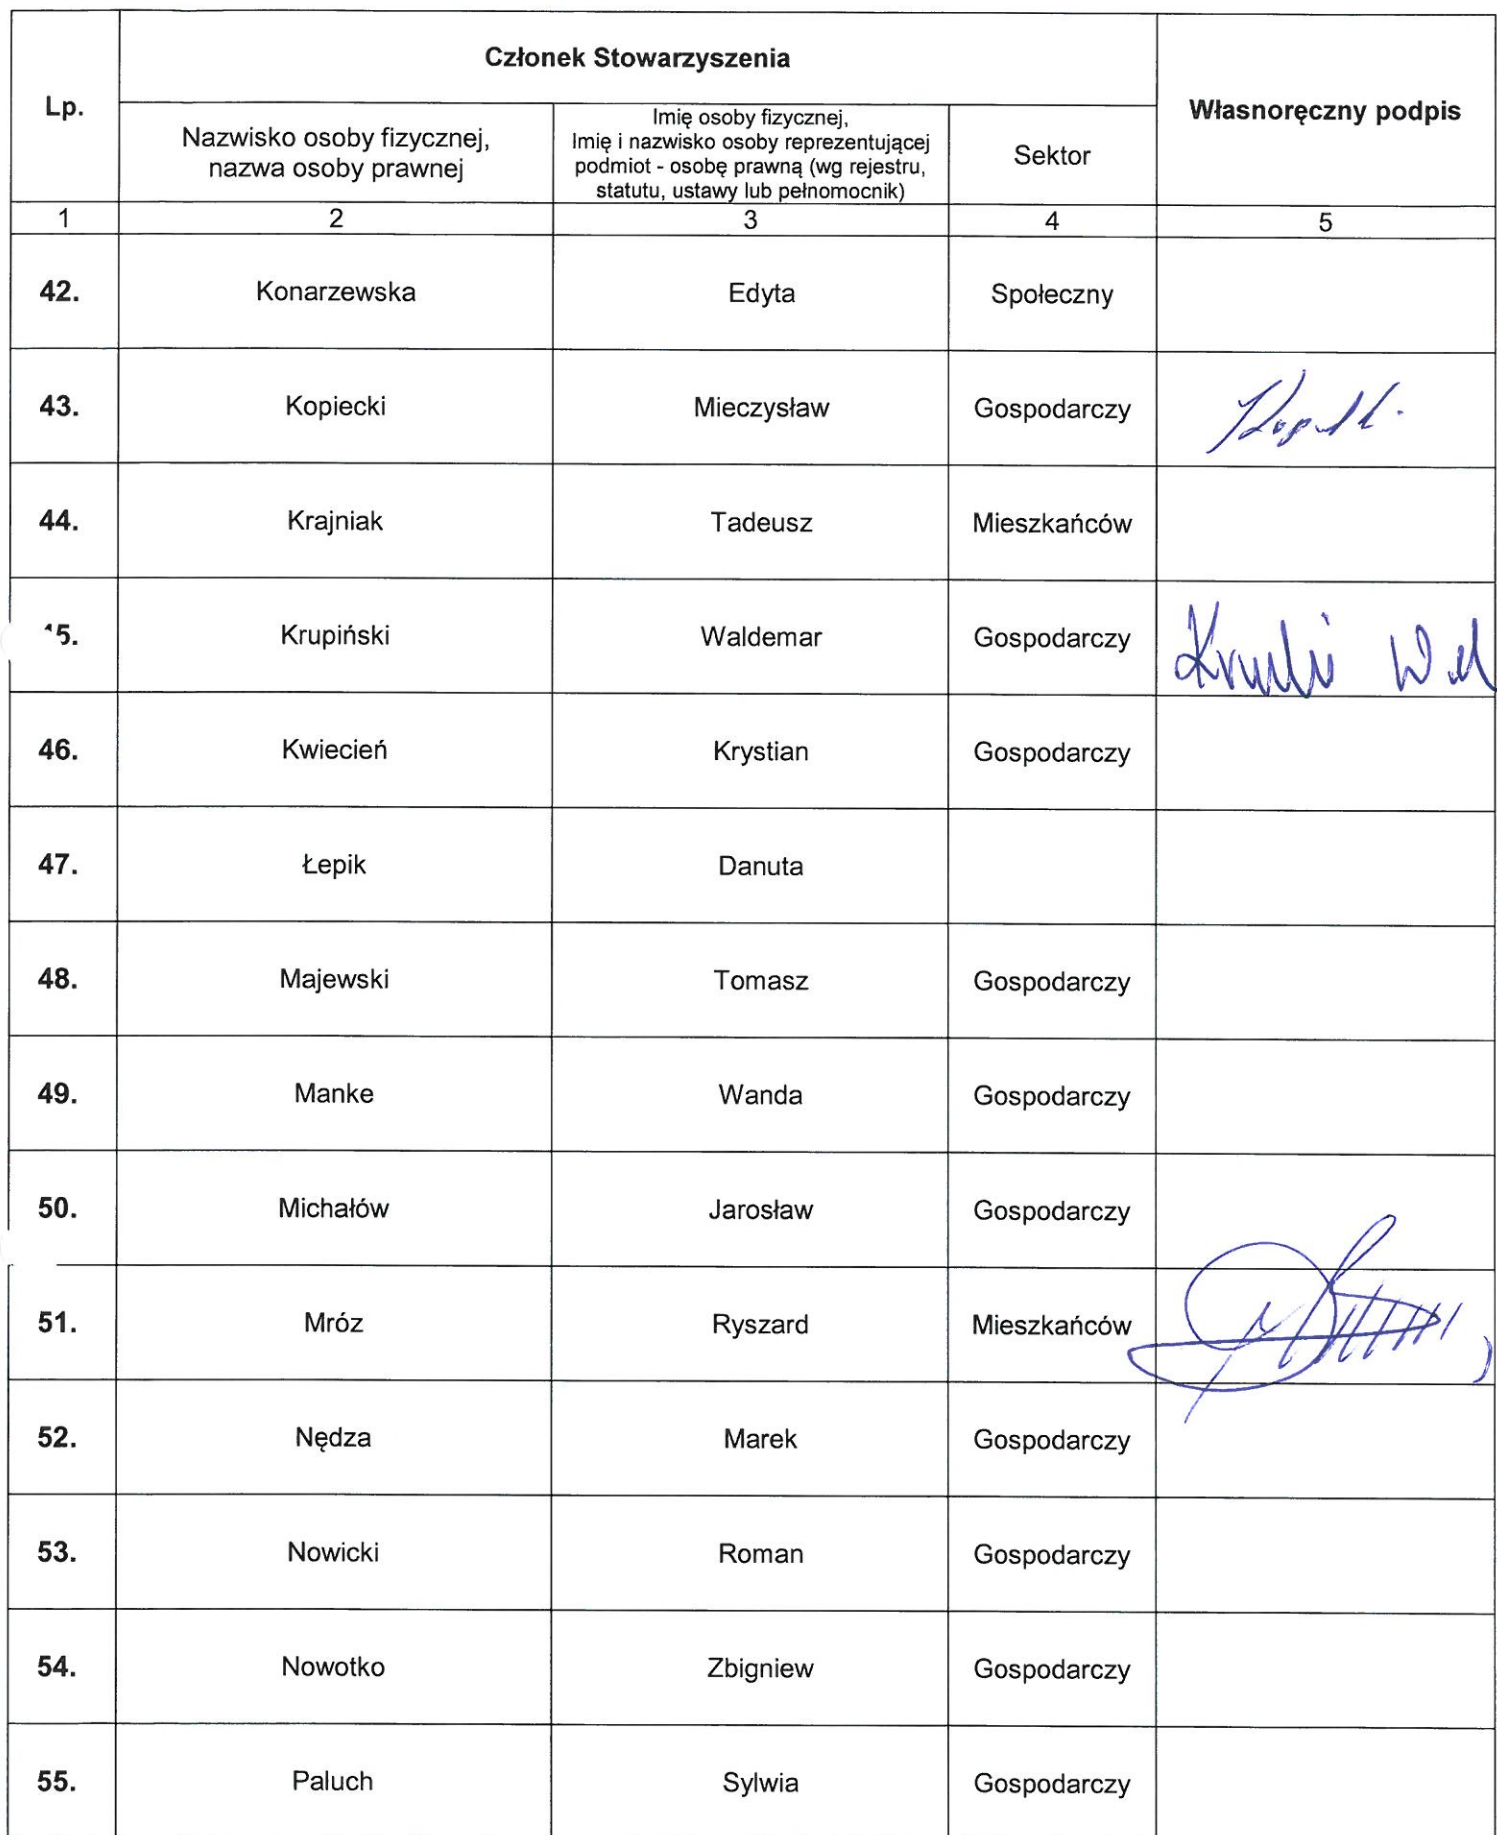 Lp.
Członek Stowarzyszenia
Własnoręczny podpis
Nazwisko osoby fizycznej,
nazwa osoby prawnej
Imię osoby fizycznej,
Imię i nazwisko osoby reprezentującej
podmiot - osobę prawną (wg rejestru,
statutu, ustawy lub pełnomocnik)
Sektor
1 2 3 4 5
42. Konarzewska Edyta Społeczny
43. Kopiecki Mieczysław Gospodarczy
44. Krajniak Tadeusz Mieszkańców
5. Krupiński Waldemar Gospodarczy
46. Kwiecień Krystian Gospodarczy
47. Łepik Danuta
48. Majewski Tomasz Gospodarczy
49. Manke Wanda Gospodarczy
50. Michałów Jarosław Gospodarczy
51. Mróz Ryszard Mieszkańców
52. Nędza Marek Gospodarczy
53. Nowicki Roman Gospodarczy
54. Nowotko Zbigniew Gospodarczy
55. Paluch Sylwia Gospodarczy